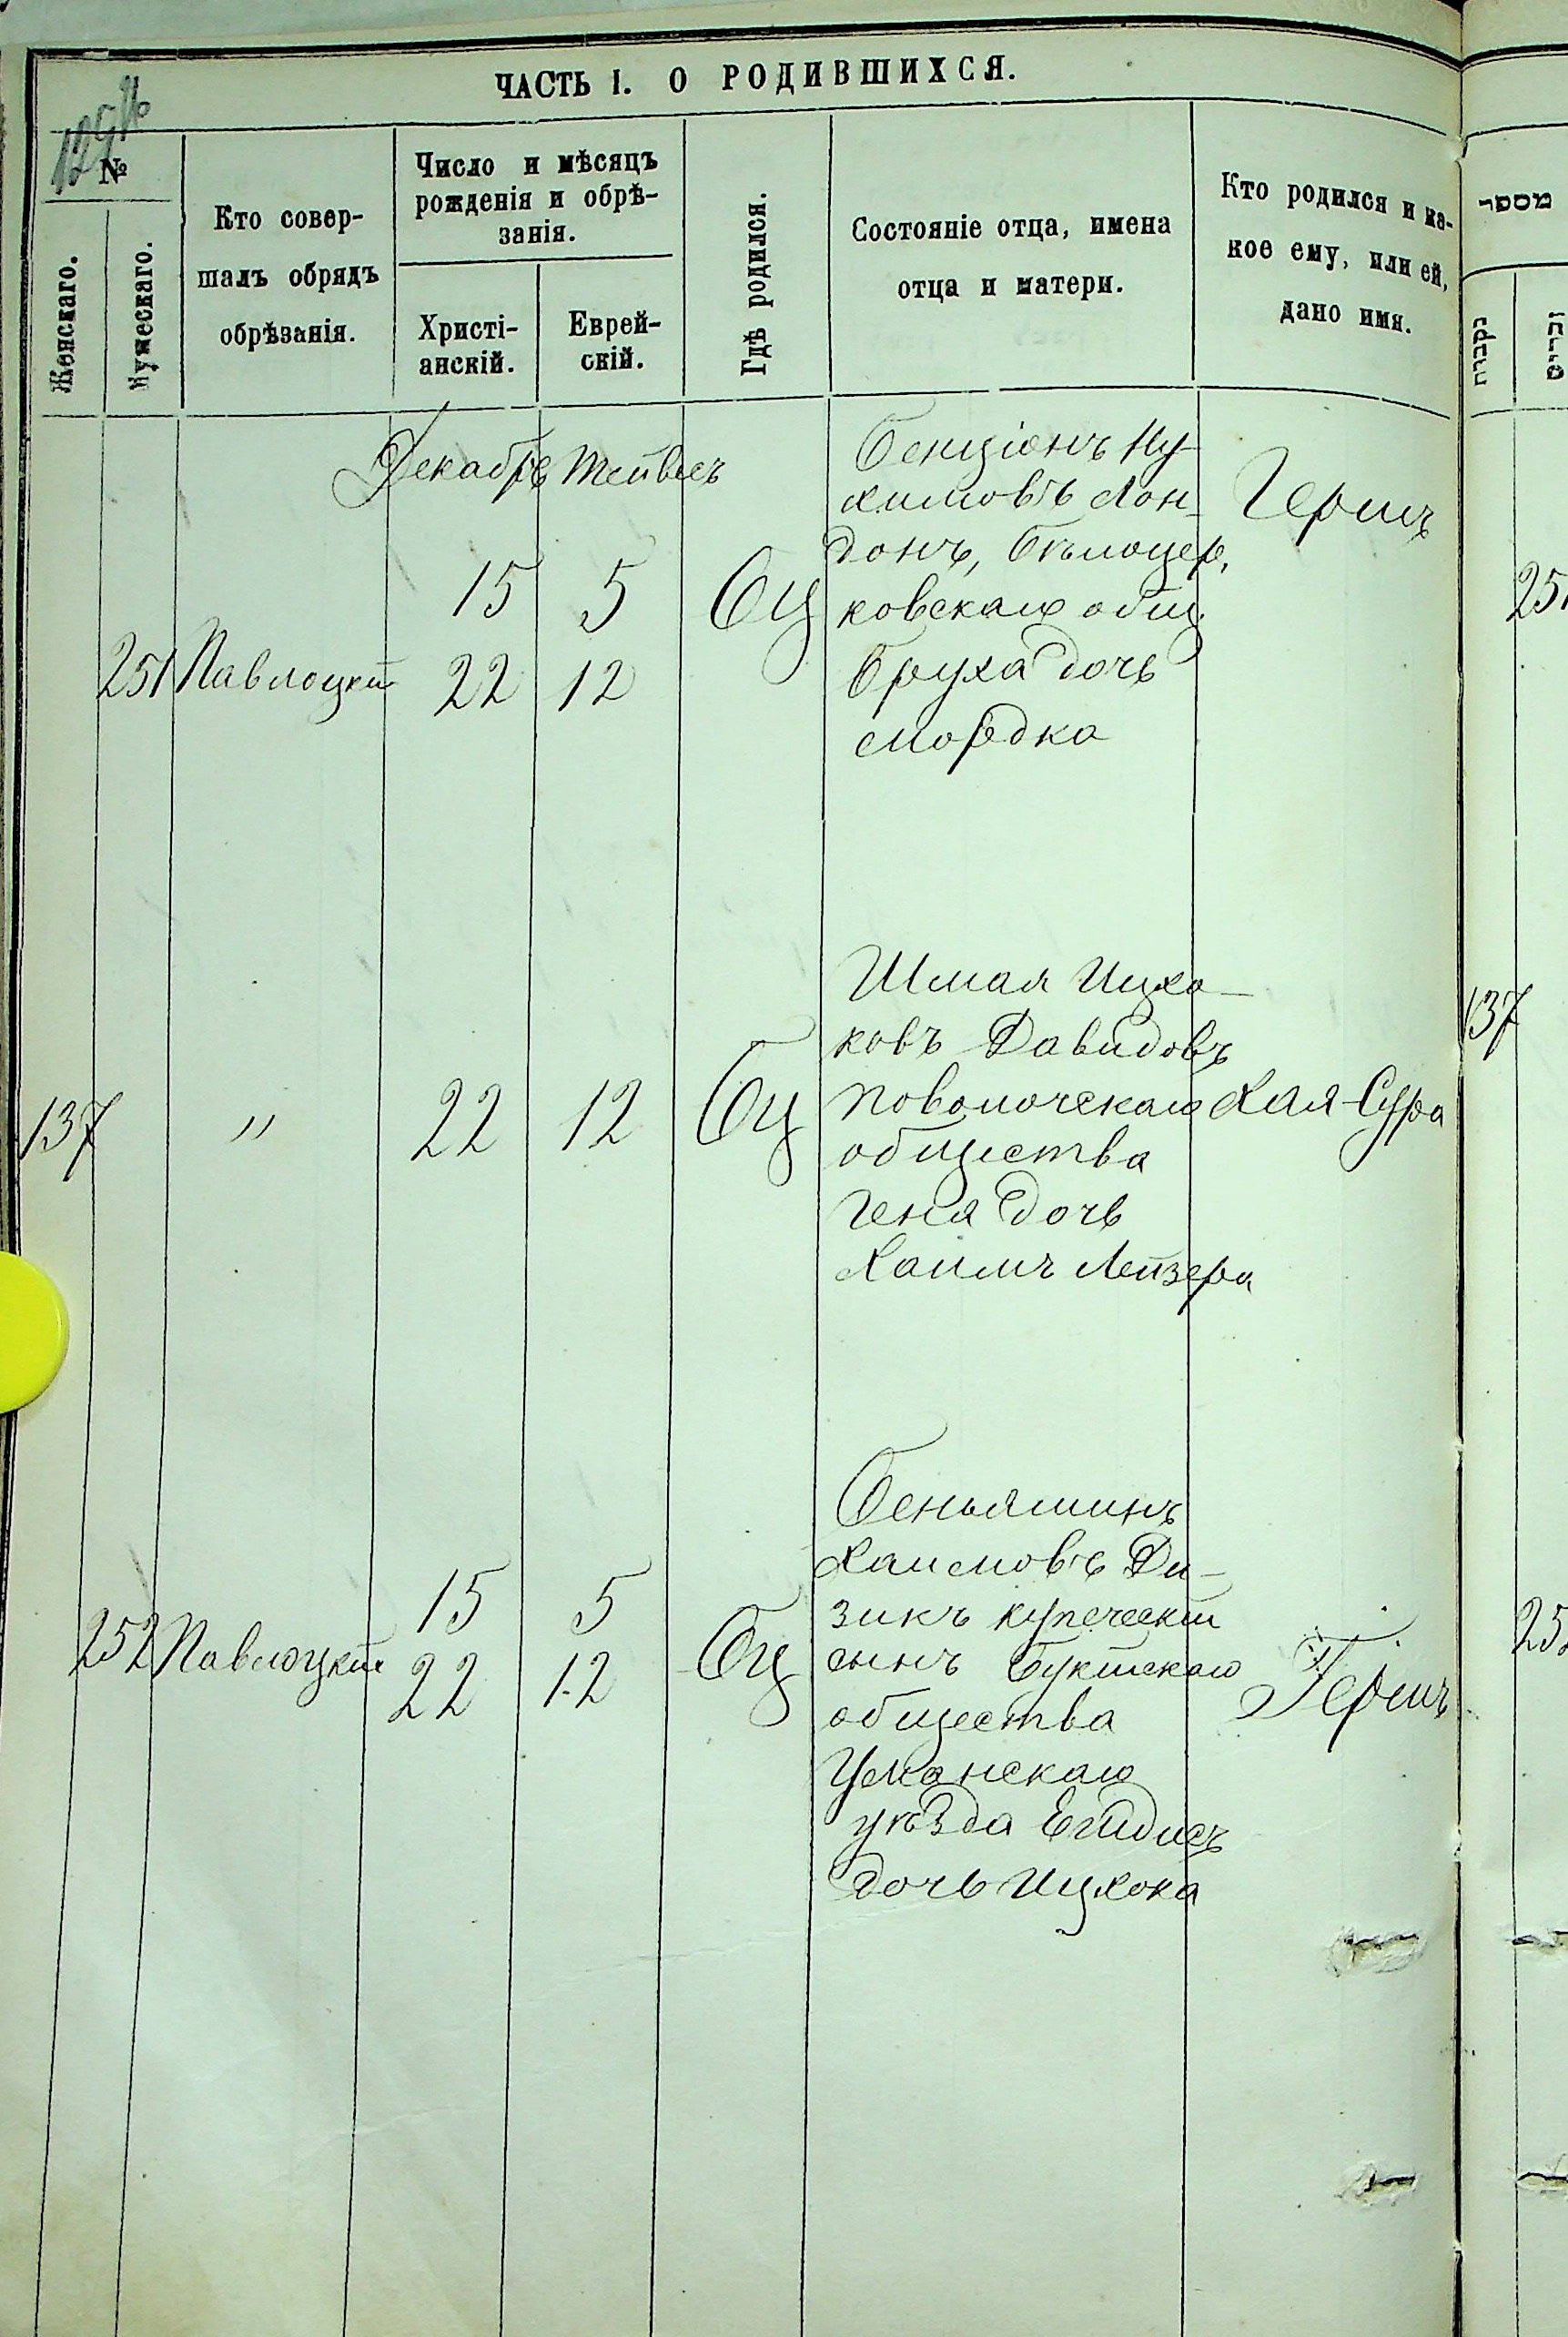 ЧАСТЬ I. О РОДИВШИХСЯ.
№
Женскаго.
Мужескаго.
Кто совер-
шалъ обрядъ
обрѣзанія.
Число и мѣсяцъ
рожденія и обрѣ-
занія.
Христі-
анскій.
Еврей-
скій.
Гдѣ родился.
Состояніе отца, имена
отца и матери.
Кто родился и ка-
кое ему, или ей,
дано имя.
מספר
נקבות
Декабрь Тейвесъ
251 Павлоцкій
15 5
22 12
Бц
Бенціонъ Ну-
химовъ Лон-
донъ, Бѣлоцер,
ковскаго общ
Бруха дочь
Мордка
Гершъ
251
137 " 22 12 Бц
Шмая Ицко-
ковъ Давидовъ
Поволочскаго
общества
Геня дочь
Хаимъ Лейзера
Хая-Сура
137
252 Павлоцкій
15 5
22 12
Бц
Беньяминъ
Хаимовъ Ди-
зикъ купеческій
сынъ Букшскаго
общества
Уманскаго
уѣзда
дочь Ицхока
Гершъ
252